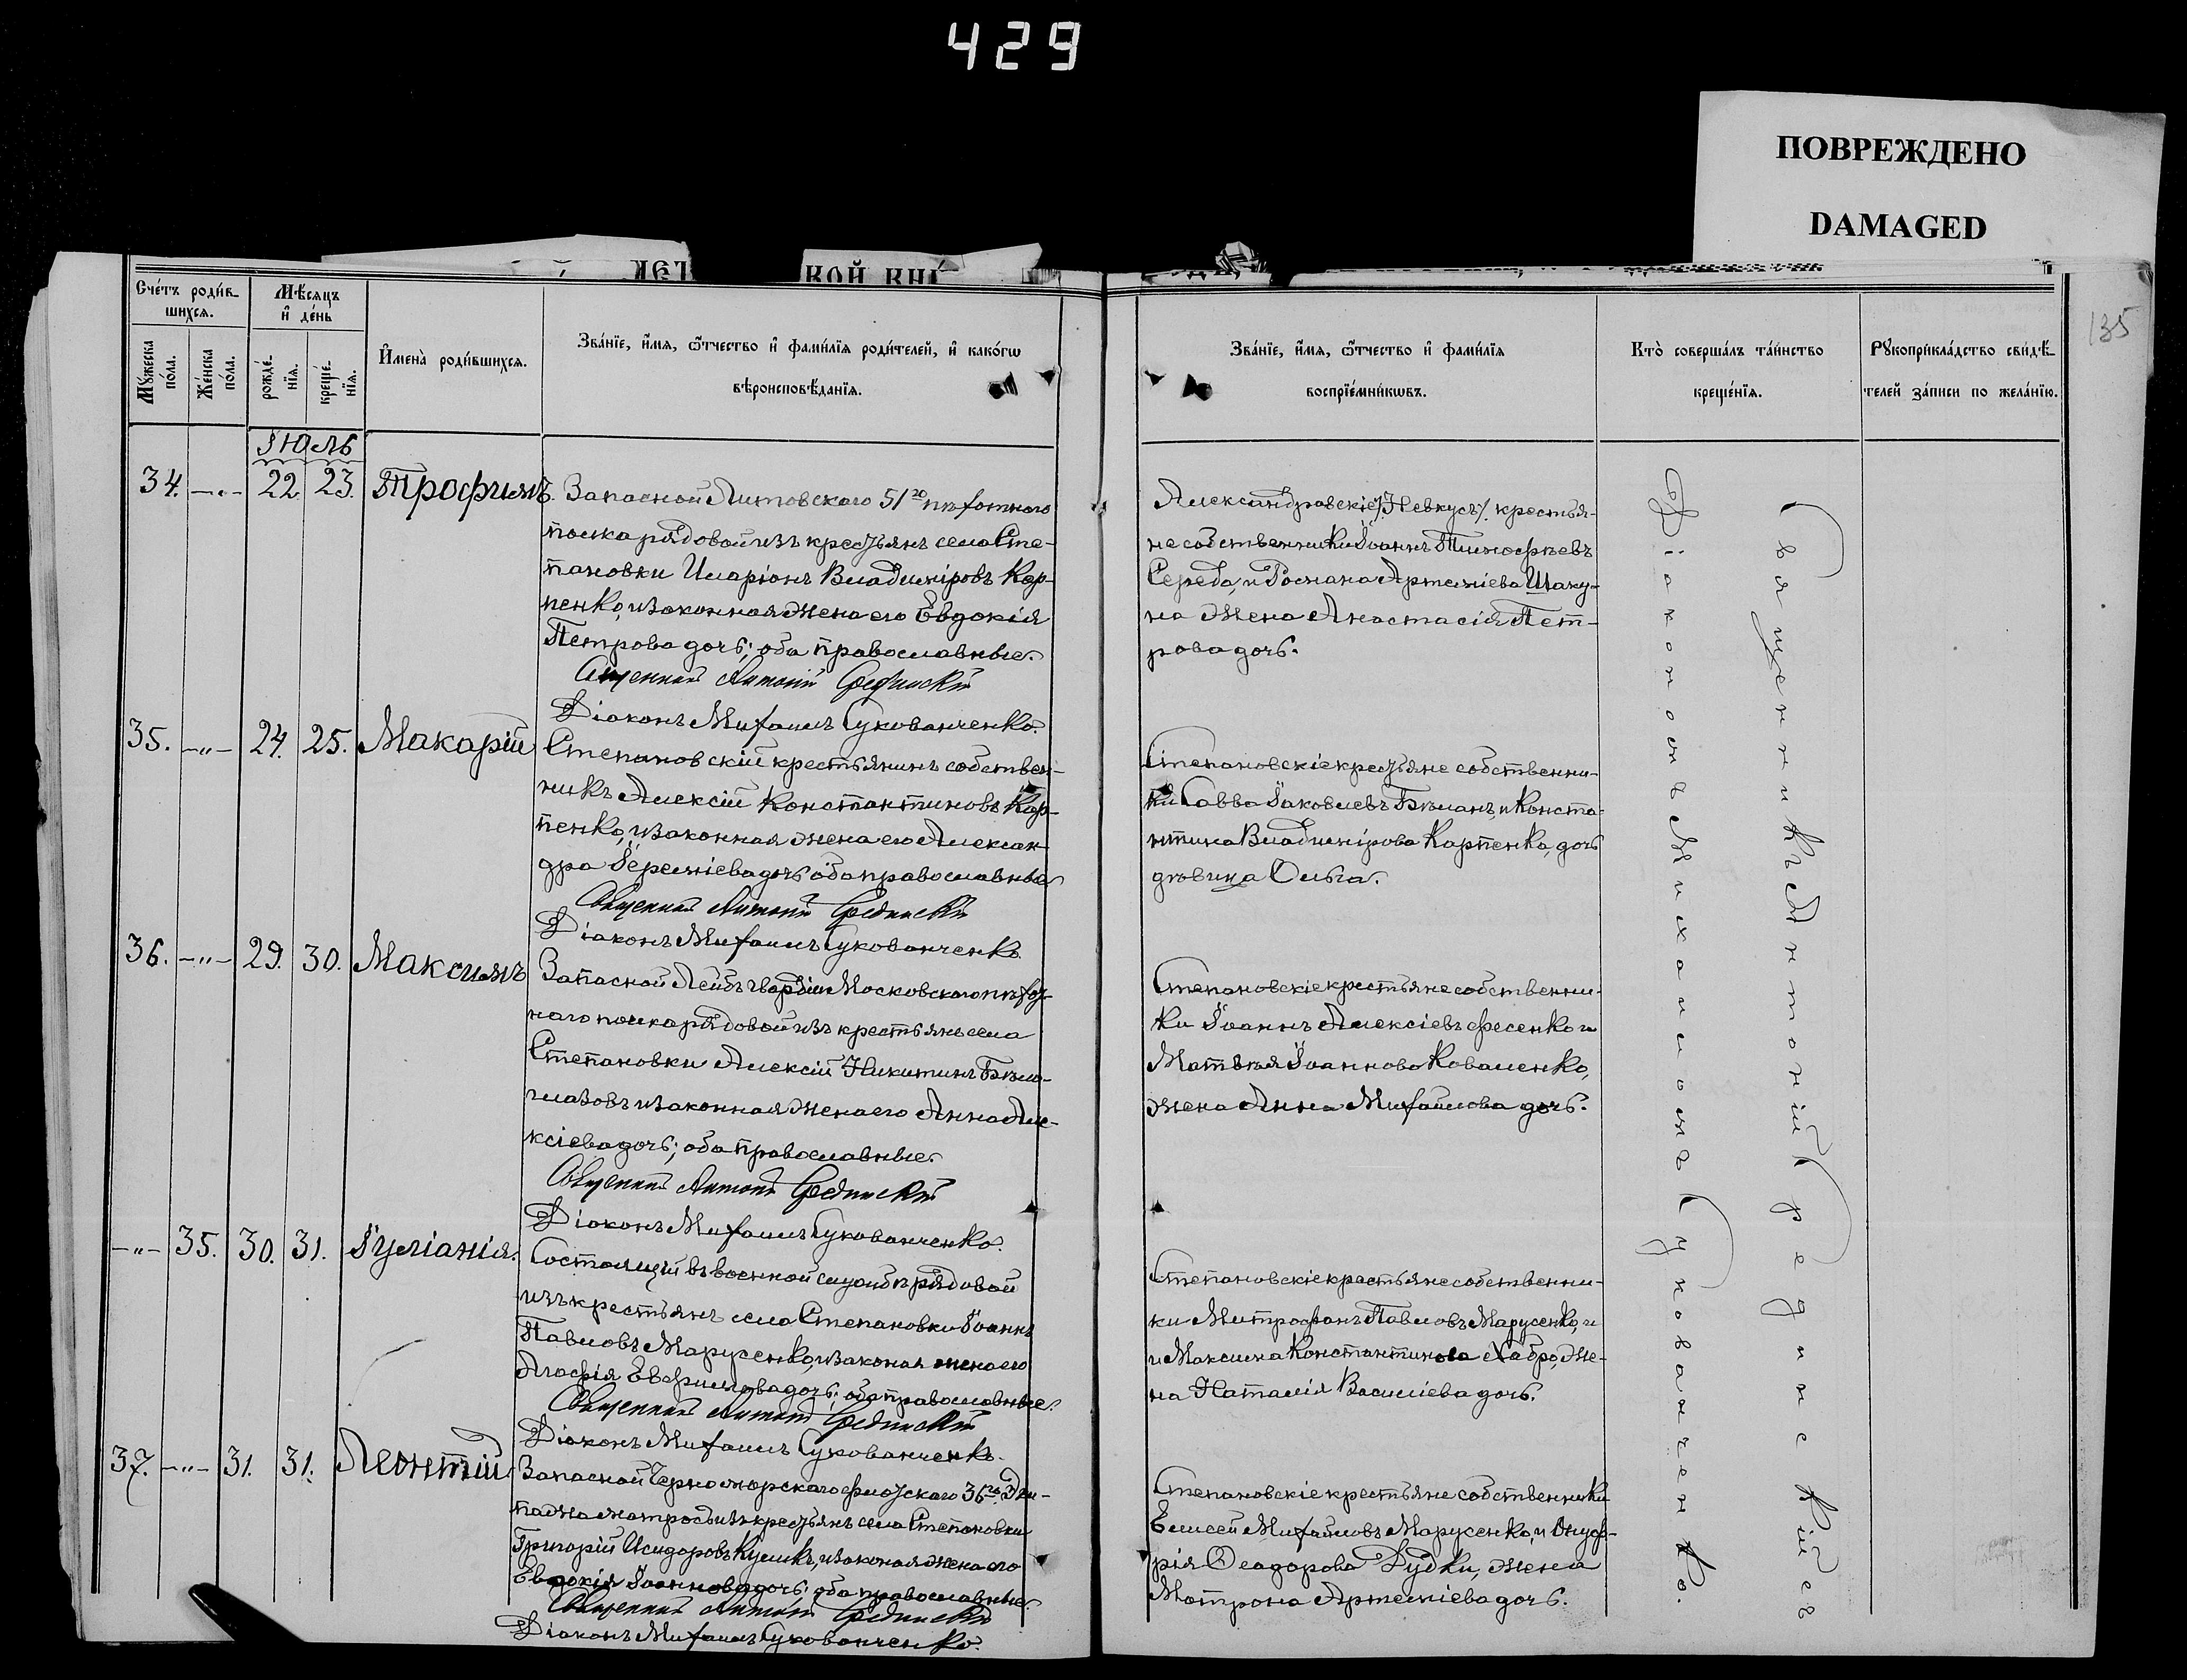 429
ПОВРЕЖДЕНО
DAMAGED
135
Сче́тъ роди́в-
шихсѧ.
Мѣ́сѧцъ
и҆ де́нь
Мꙋ́жеска
по́ла.
Же́нска
по́ла.
рожде́-
нїѧ.
креще́-
нїѧ.
И҆мена̀ роди́вшихсѧ.
Зва́нїе, и҆́мѧ, ѻ҆́тчество и҆ фами́лїѧ роди́телей, и҆ како́гѡ
вѣроисповѣ́данїѧ.
Зва́нїе, и҆́мѧ, ѻ҆́тчество и҆ фами́лїѧ
воспрїе́мникѡвъ.
Кто̀ соверша́лъ та́инство
креще́нїѧ.
Рꙋкоприкла́дство свидѣ́-
телей за́писи по жела́нїю.
Іюль
34. —"— 22. 23. Трофимъ.
Запасной Литовскаго 51го пѣхотнаго
полка рядовой изъ крестьянъ села Сте-
пановки Иларіонъ Владиміровъ Кар-
пенко, и законная жена его Евдокія
Петрова дочь; оба православные.
Священникъ Антоній Срединскій
Діаконъ Михаилъ Сукованченко.
Александровскіе /Невкусъ/ крестья-
не собственники Іоаннъ Тимофѣевъ
Середа, и Романа Артеміева Шаку-
на жена Анастасія Пет-
рова дочь.
35. —"— 24. 25. Макарій
Степановскій крестьянинъ собствен-
никъ Алексій Константиновъ Кар-
пенко, и законная жена его Алексан-
дра Іереміева дочь; оба православные
Священникъ Антоній Срединскій
Діаконъ Михаилъ Сукованченко
Степановскіе крестьяне собственни-
ки Савва Іаковлевъ Бѣланъ, и Конста-
нтина Владимірова Карпенка, дочь
дѣвица Ольга.
36. —"— 29. 30. Максимъ
Запасной Лейбъ гвардіи Московскаго пѣхот-
наго полка рядовой изъ крестьянъ села
Степановки Алексій Никитинъ Бѣло-
глазовъ и законная жена его Анна Але-
ксіева дочь; оба православные.
Священникъ Антоній Срединскій
Діаконъ Михаилъ Сукованченко.
Степановскіе крестьяне собственни-
ки Іоаннъ Алексіевъ Фесенко и
Матѳѣя Іоаннова Коваленко,
жена Анна Михайлова дочь.
—"— 35. 30. 31. Іуліанія.
Состоящій въ военной службѣ рядовой
изъ крестьянъ села Степановки Іоаннъ
Павловъ Марусенко, и законая жена его
Агафія Евфимова дочь; оба православные.
Священникъ Антоній Срединскій
Діаконъ Михаилъ Сукованченко.
Степановскіе крестьяне собственни-
ки Митрофанъ Павловъ Марусенко, и
и Максима Константинова Хабро, же-
на Наталія Василіева дочь.
37. —"— 31. 31. Леонтій
Запасной Черноморскаго флотскаго 36го Эки-
пажа матросъ изъ крестьянъ села Степановки
Григорій Исидоровъ Куликъ, и законая жена его
Евдокія Іоаннова дочь; оба православные.
Священникъ Антоній Срединскій
Діаконъ Михаилъ Сукованченко.
Степановскіе крестьяне собственники
Елисей Михайловъ Марусенко, и Онуф-
рія Ѳеодорова Дудки, жена
Матрона Артеміева дочь.
Священникъ Антоній Срединскій съ
Діакономъ Михаиломъ Сукованченко.